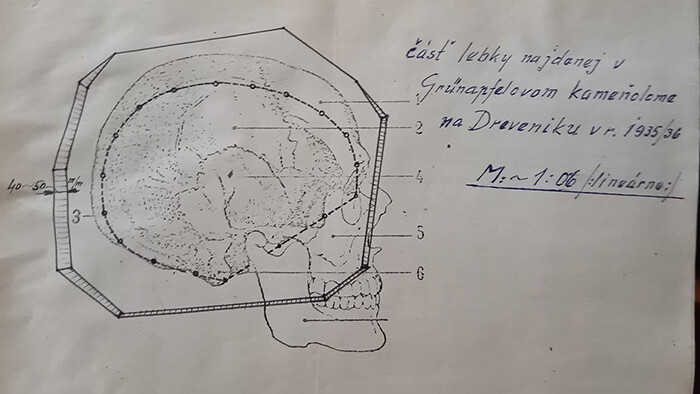 časť lebky najdenej v
Grünapfelovom kameňolome
na Dreveniku v r. 1935/36
M: ~ 1:06 /:lineárne:/
1
2
40–50 m/m
4
3
5
6